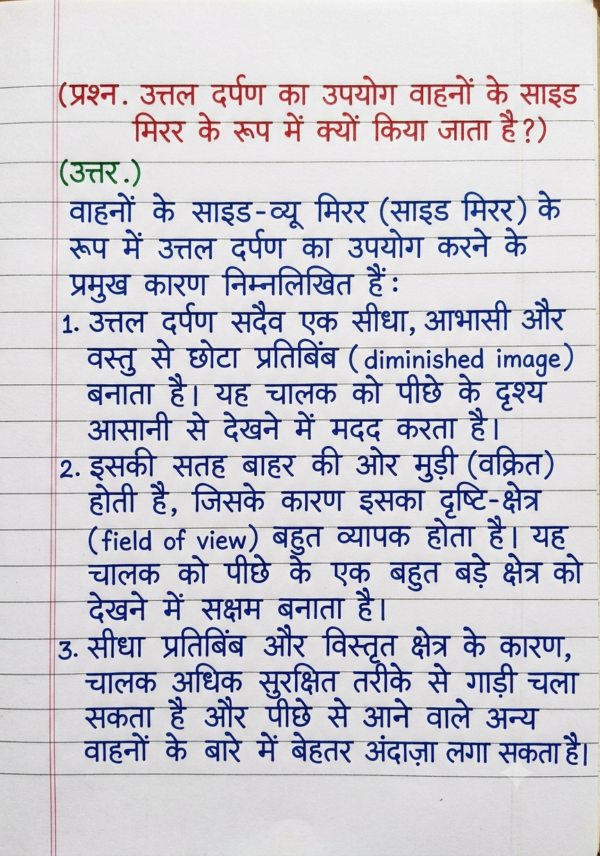 (प्रश्न. उत्तल दर्पण का उपयोग वाहनों के साइड
मिरर के रूप में क्यों किया जाता है?)
(उत्तर.)
वाहनों के साइड-व्यू मिरर (साइड मिरर) के
रूप में उत्तल दर्पण का उपयोग करने के
प्रमुख कारण निम्नलिखित हैं:
1. उत्तल दर्पण सदैव एक सीधा, आभासी और
वस्तु से छोटा प्रतिबिंब (diminished image)
बनाता है। यह चालक को पीछे के दृश्य
आसानी से देखने में मदद करता है।
2. इसकी सतह बाहर की ओर मुड़ी (वक्रित)
होती है, जिसके कारण इसका दृष्टि-क्षेत्र
(field of view) बहुत व्यापक होता है। यह
चालक को पीछे के एक बहुत बड़े क्षेत्र को
देखने में सक्षम बनाता है।
3. सीधा प्रतिबिंब और विस्तृत क्षेत्र के कारण,
चालक अधिक सुरक्षित तरीके से गाड़ी चला
सकता है और पीछे से आने वाले अन्य
वाहनों के बारे में बेहतर अंदाज़ा लगा सकता है।